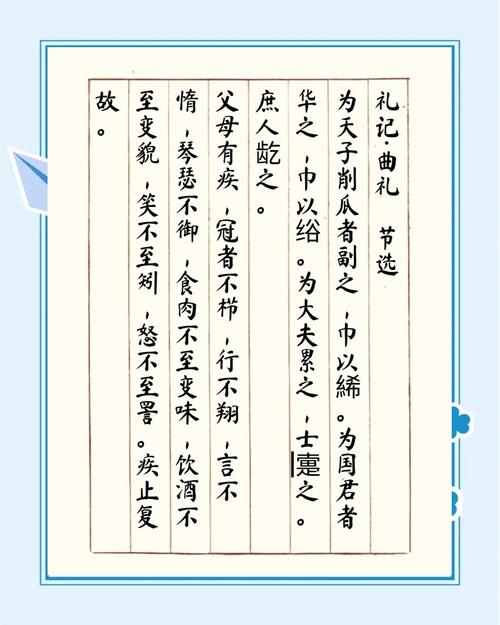 礼记·曲礼 节选
为天子削瓜者副之，巾以絺。为国君者
华之，巾以绤。为大夫累之，士疐之。
庶人龁之。
父母有疾，冠者不栉，行不翔，言不
惰，琴瑟不御，食肉不至变味，饮酒不
至变貌，笑不至矧，怒不至詈。疾止复
故。